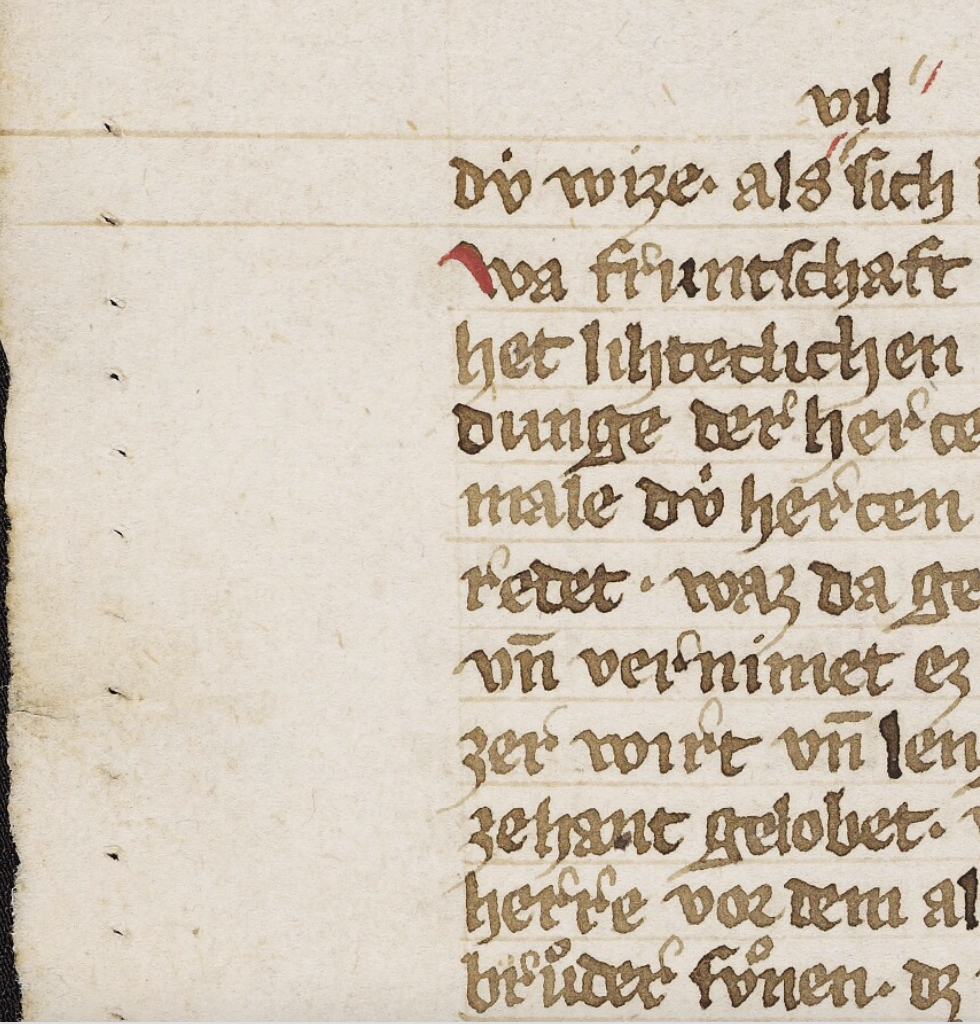 vil
dv̍ wize· als ſich
wa fruntſchaft
het lihteclichen
dunge der herce
male dv̍ hercen
redet · waz da ge
vn̄ vernimet ez
zer wirt vn̄ len
zehant gelobet·
herre vor dem al
brůder ſvͦnen· dz